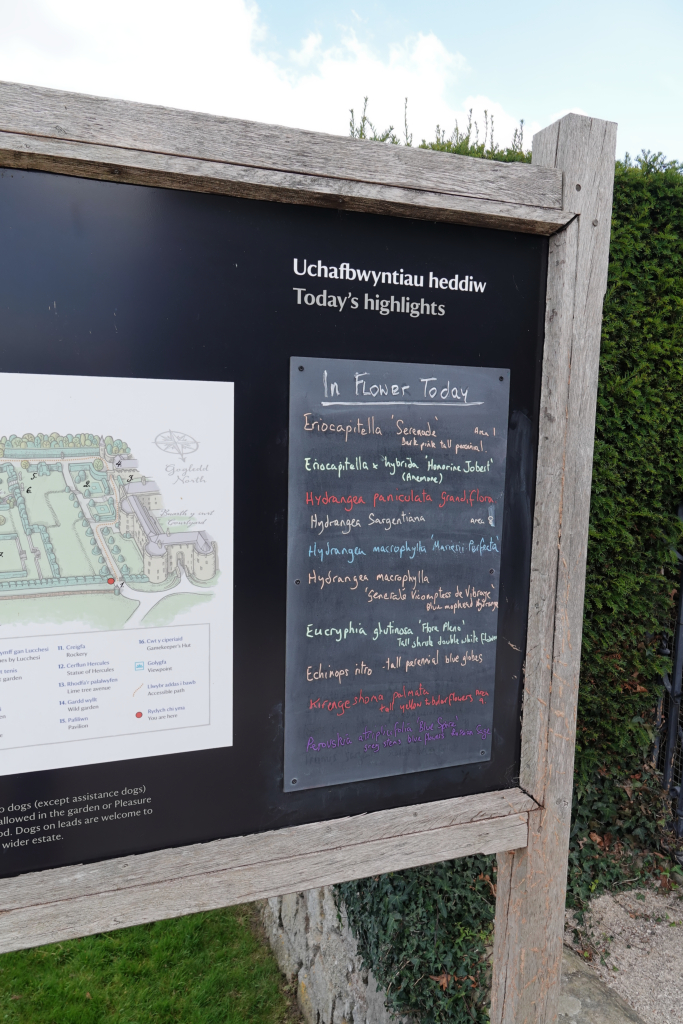 Uchafbwyntiau heddiw
Today's highlights
In Flower Today
Eriocapitella 'Serenade' Area 1
Dark pink tall perennial
Eriocapitella x hybrida 'Honorine Jobert'
(Anemone)
Hydrangea paniculata grandiflora
Hydrangea Sargentiana area 8
Hydrangea macrophylla 'Mariesii Perfecta'
Hydrangea macrophylla
'Generale Vicomptess de Vibraye
Blue mophead hydrange
Eucryphia glutinosa 'Flora Pleno'
Tall shrub double white flower
Echinops ritro - tall perennial blue globes
Kirengeshoma palmata
tall yellow tubular flowers area
9
Perovskia atriplicifolia 'Blue Spire'
grey stems blue flowers Russian Sage
Gogledd
North
gan Lucchesi
by Lucchesi
garden
11. Creigfa
Rockery
12. Cerflun Hercules
Statue of Hercules
13. Rhodfa'r palalwyfen
Lime tree avenue
14. Gardd wyllt
Wild garden
15. Pafiliwn
Pavilion
16. Cwt y ciperiaid
Gamekeeper's Hut
Golygfa
Viewpoint
Llwybr addas i bawb
Accessible path
Rydych chi yma
You are here
dogs (except assistance dogs)
allowed in the garden or Pleasure
Dogs on leads are welcome to
wider estate.